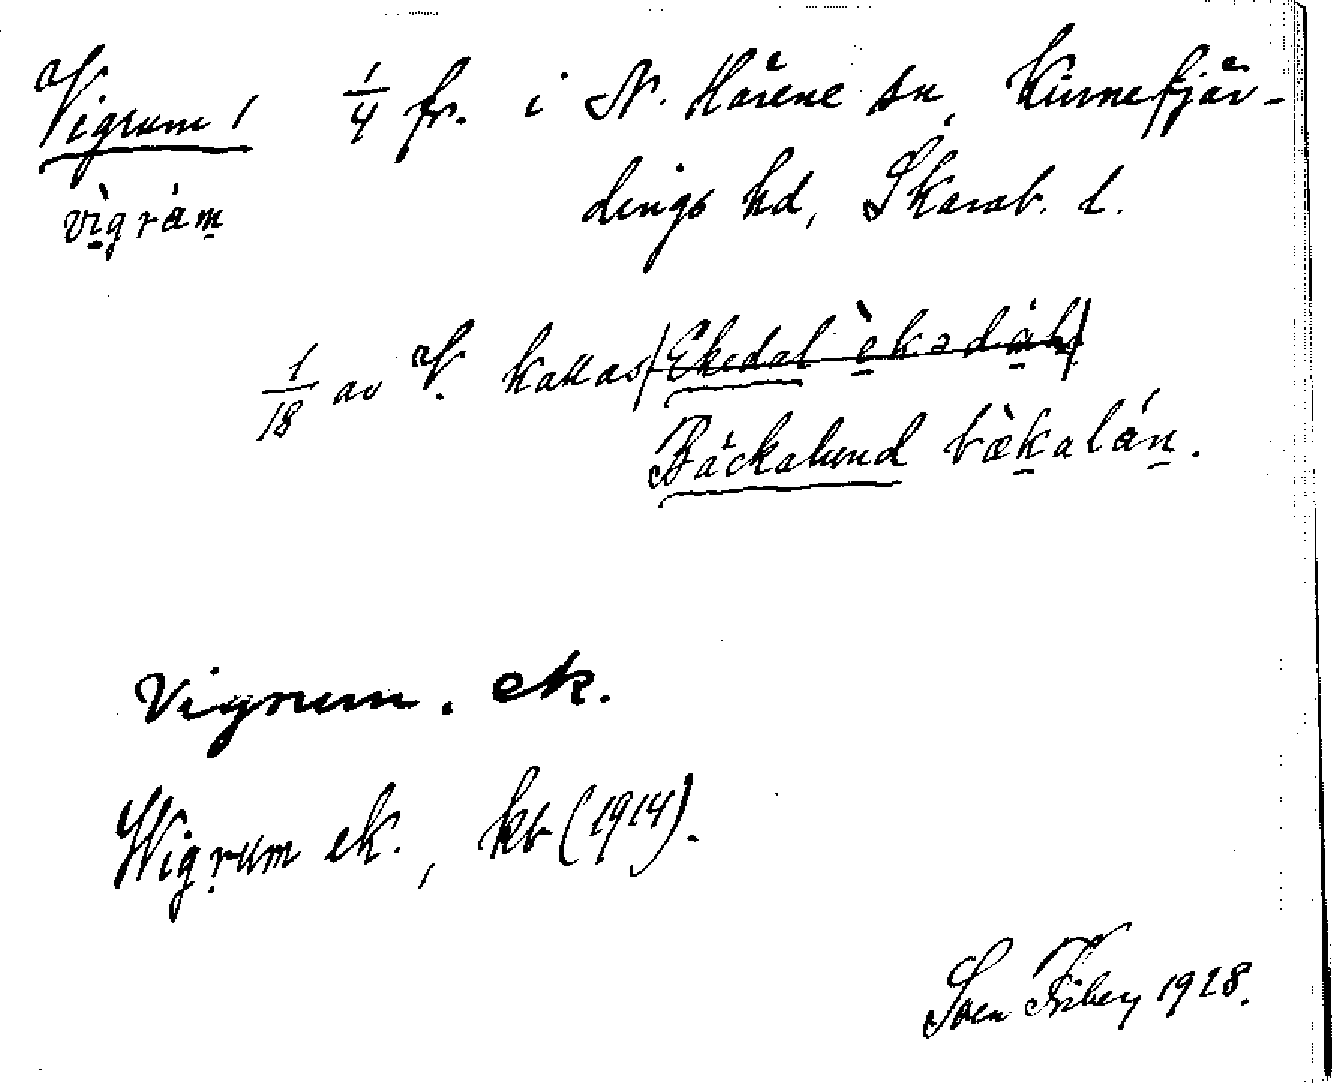 Vigrum, 1/4 fr. i N. Härene sn, Kinnefjär-
vìgrám dings hd, Skarab. l.
1/18 av V. kallas (Ekedal èkadál)
Bäckalund bækalán.
Vigrum. ek.
Wigrum ek., kb (1914).
Sven Friberg 1928.